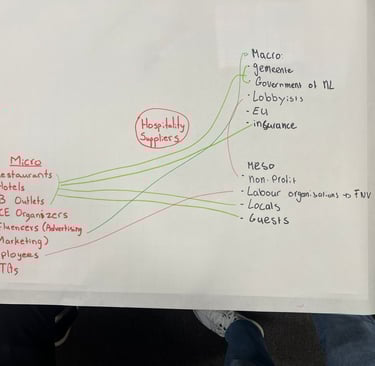 Macro:
- gemeente
- Government of NL
- Lobbyists
- EU
- insurance
Hospitality
Suppliers
Micro
estaurants
Hotels
B Outlets
CE Organizers
fluencers (Advertising
Marketing)
ployees
TAs
Meso
- Non-Profit
- Labour organisations → FNV
- Locals
- Guests